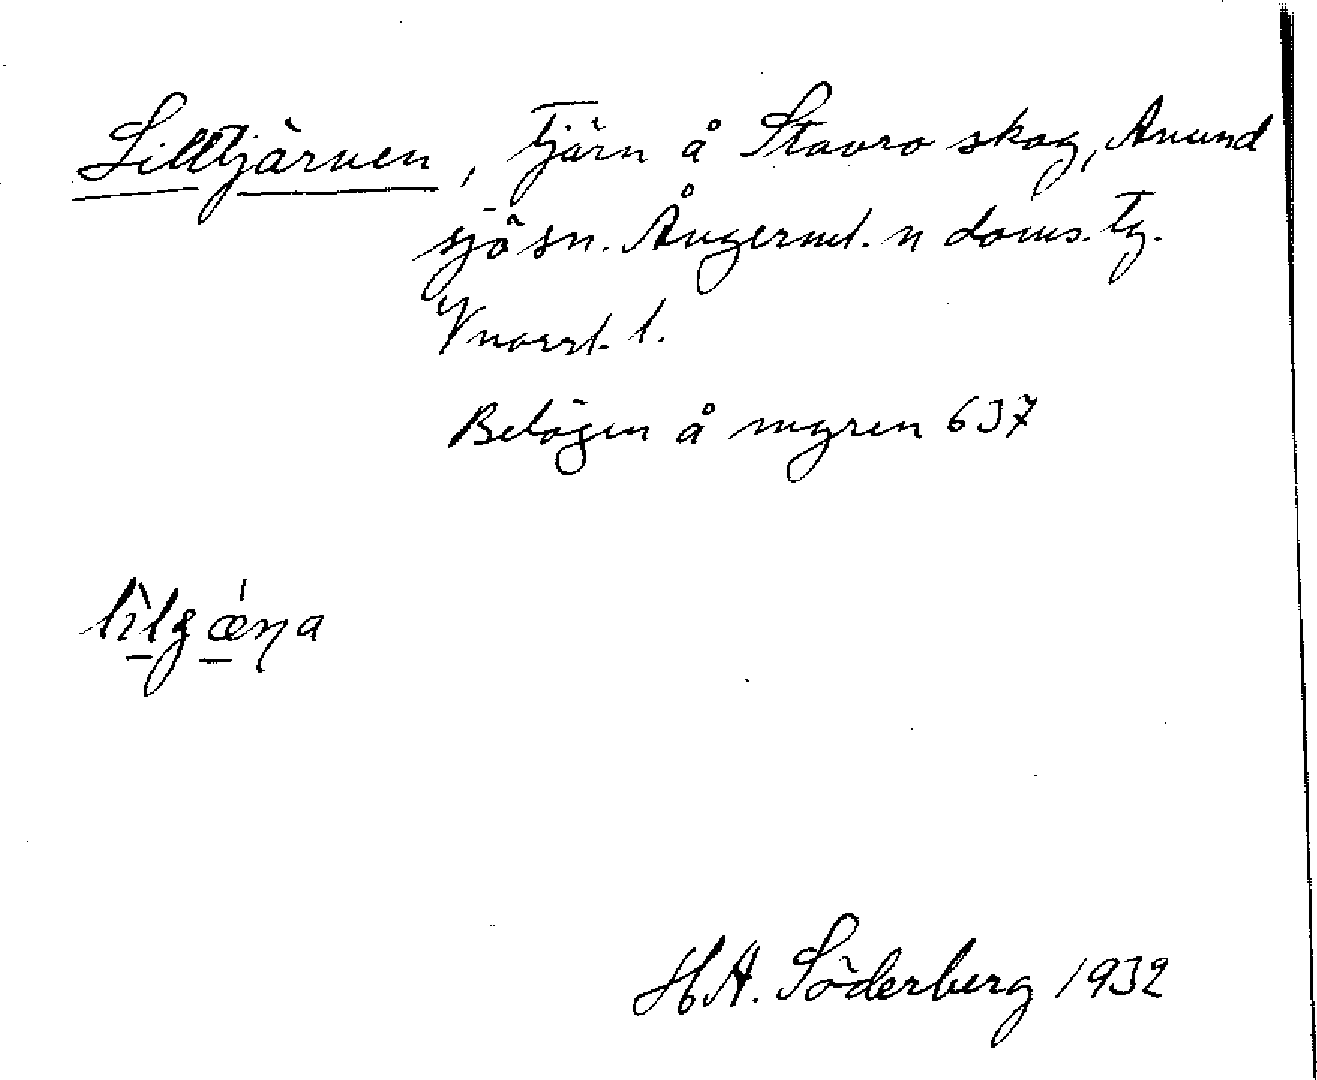 Lilltjärnen, Tjärn å Stavro skog, Anund
sjö sn. Ångerml. n doms. Tg.
Vnorrl. l.
Belägen å myren 637
H A. Söderberg 1932